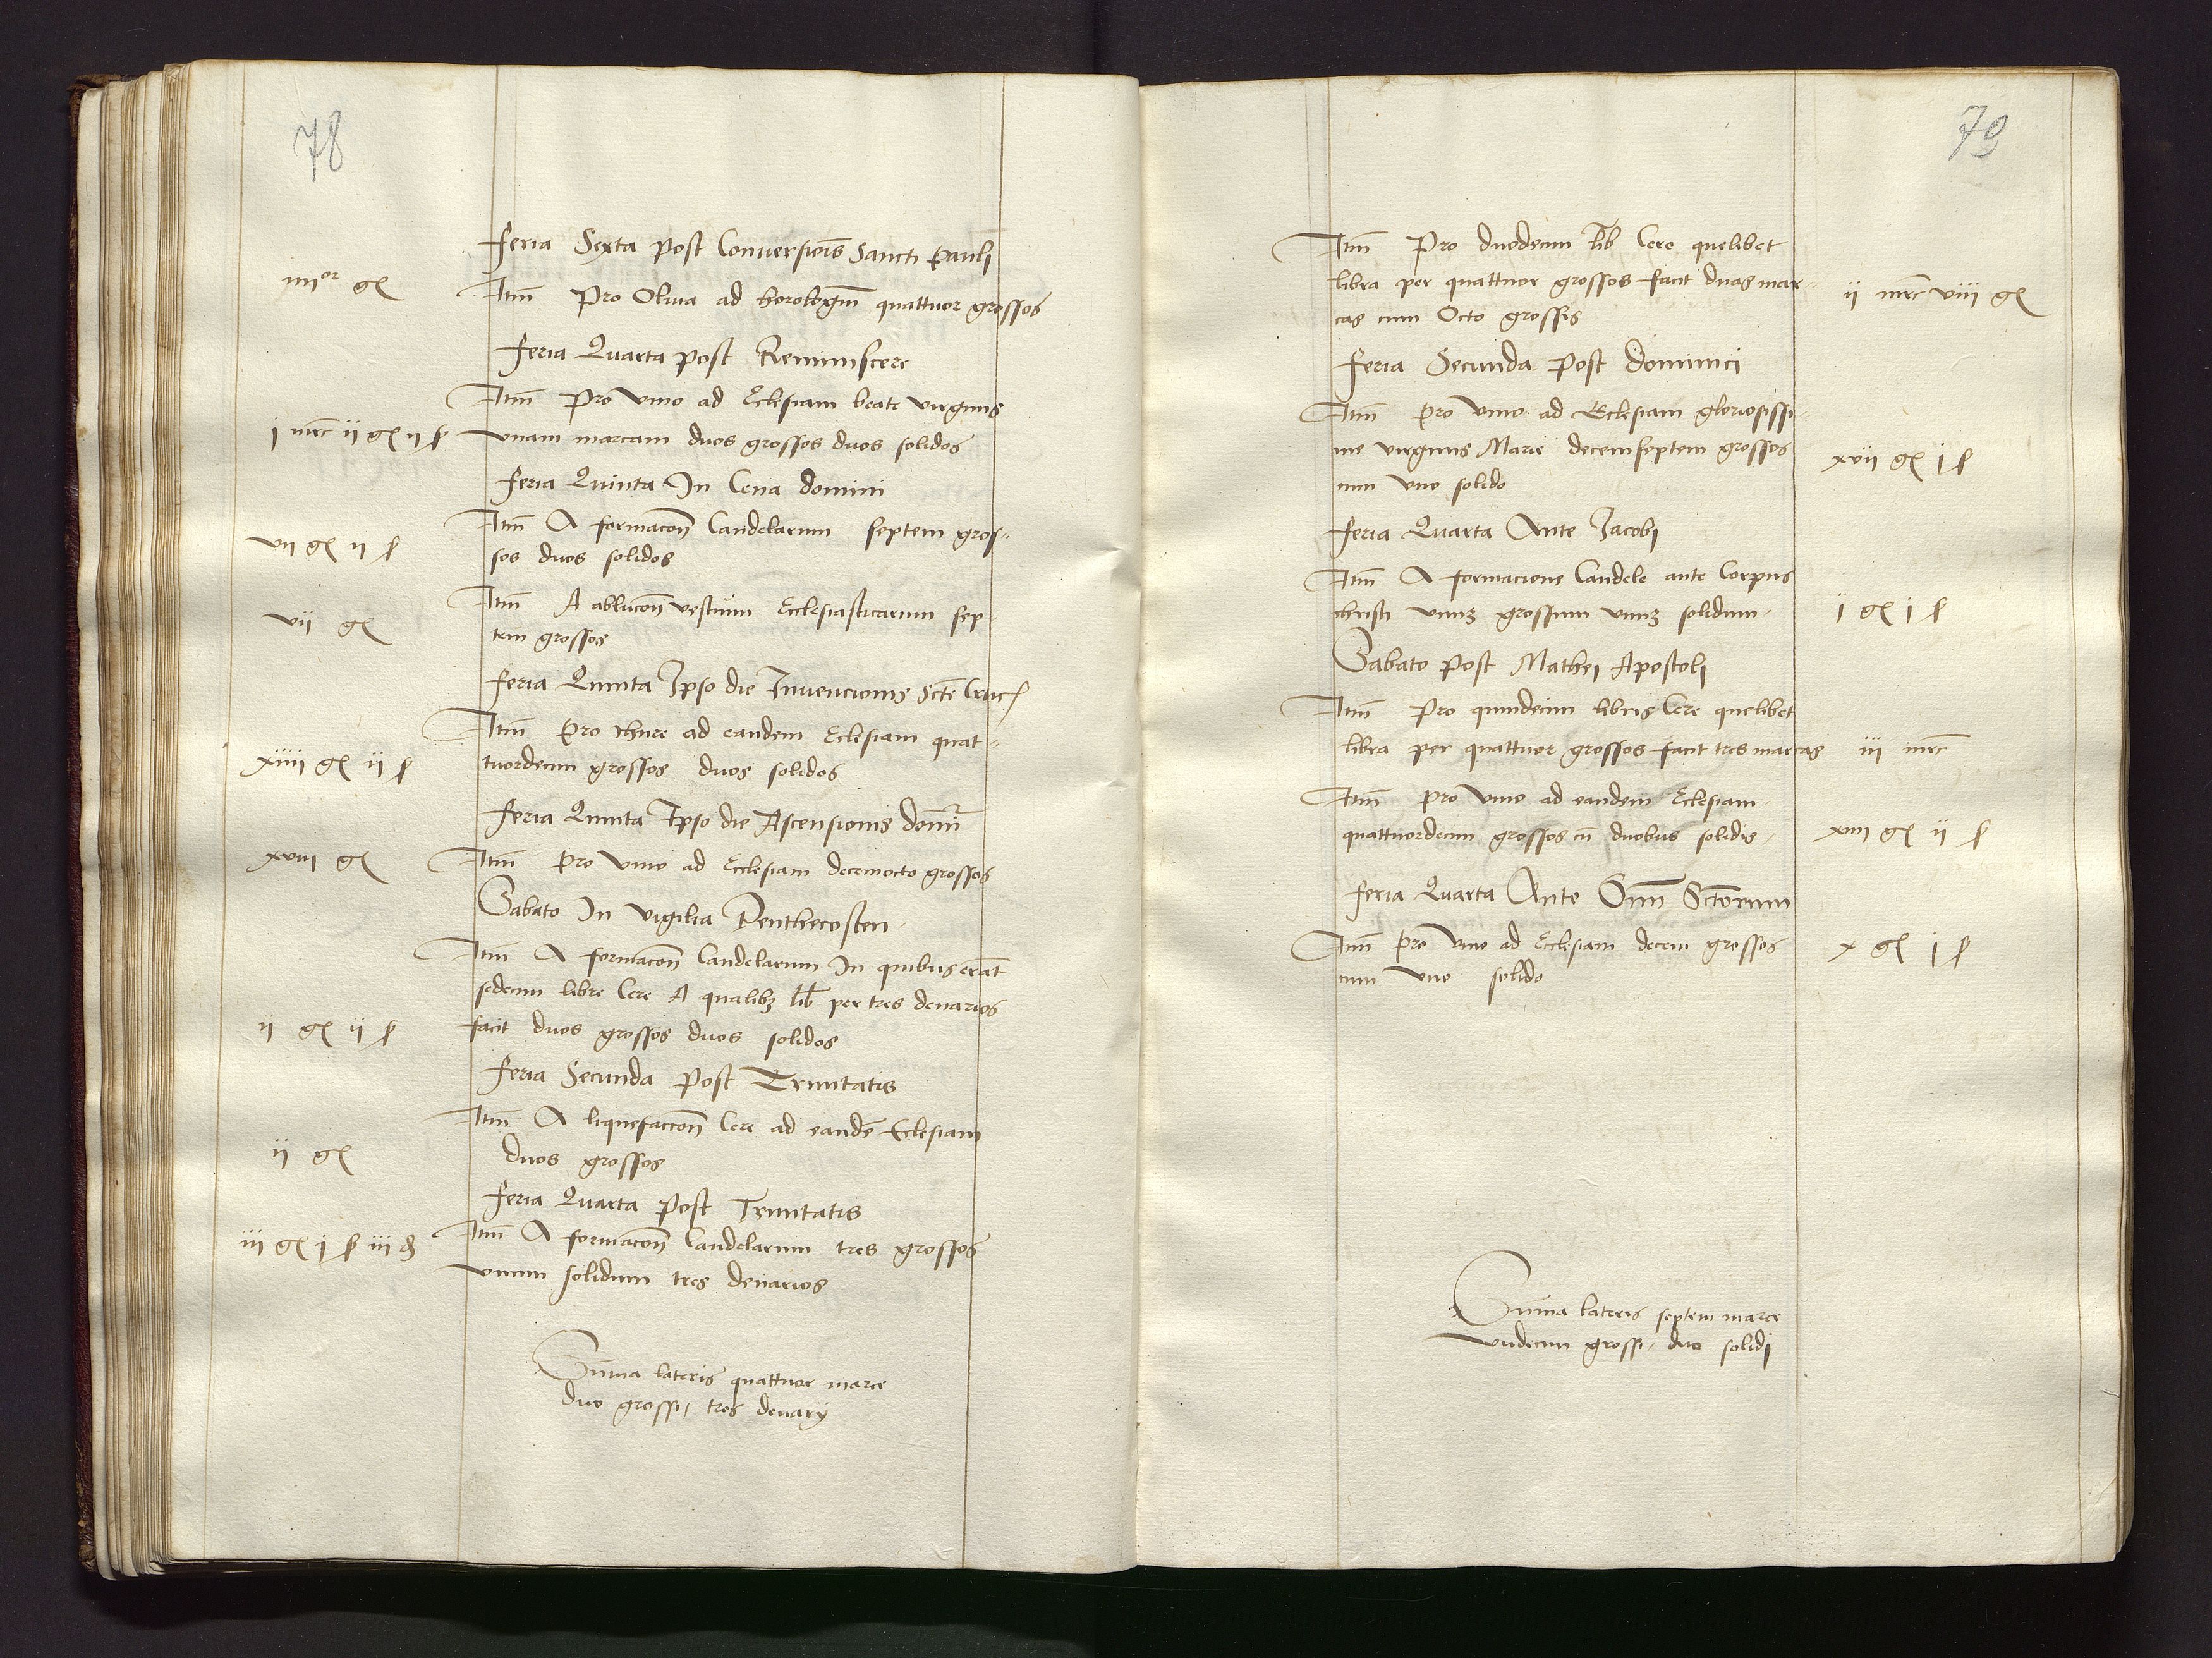 78
Feria Sexta post Conuersiōis Sancti Pauli
iiiior gr
Itm̄ Pro Oliua ad horologm̄ quattuor grossos
Feria Quarta post Reminiscere
Itm̄ Pro vino ad Eclesiam beate virginis
j mrc ij gr ij ſ
vnam marcam duos grossos duos solidos
Feria Quinta In Cena domini
Itm̄ A formacoñ Candelarum septem gros=
vij gr ij ſ
sos duos solidos
Itm̄ A ablucoñ vestium Ecclesiasticarum sep=
vij gr
tem grossos
Feria Quinta Ipso die Inuencionis Scte Cruc
Itm̄ Pro thure ad eandem Eclesiam quat=
xiiij gr ij ſ
tuordecim grossos duos solidos
Feria Quinta Ipso die Ascensionis domī
xviij gr
Itm̄ Pro vino ad Ecclesiam decemocto grossos
Sabato In vigilia Penthecosten
Itm̄ A formacoñ Candelarum In quibus erāt
sedecim libre Cere A qualibꝫ lib per tres denarios
ij gr ij ſ
facit duos grossos duos solidos
Feria Secunda Post Trinitatis
Itm̄ A liquefaccoñ Cere ad eandē Eclesiam
ij gr
duos grossos
Feria Quarta Post Trinitatis
iij gr j ſ iij d
Itm̄ A formacoñ Candelarum tres grossos
vnum solidum tres denarios
Summa lateris quattuor marce
duo grossi, tres denarij
79
Itm̄ Pro duodecim lib Cere quelibet
libra per quattuor grossos facit duas mar=
ij mrc viij gr
cas cum Octo grossis
Feria Secunda Post dominici
Itm̄ Pro vino ad Eclesiam gloriosissi=
me virginis Marie decemseptem grossos
xvij gr j ſ
cum vno solido
Feria Quarta Ante Jacobi
Itm̄ A formacione Candele ante Corpus
christi vnuꝫ grossum vnuꝫ solidum
j gr j ſ
Sabato Post Mathei Apostoli
Itm̄ Pro quindecim libris Cere quelibet
libra per quattuor grossos facit tres marcas
iij mrc
Itm̄ pro vino ad eandem Eclesiam
quattuordecim grossos cū duobus solidis
xiiij gr ij ſ
Feria Quarta Ante Omm̄ Sctorum
Itm̄ pro vino ad Ecclesiam decem grossos
x gr j ſ
cum vno solido
Summa lateris septem marce
vndecim grossi, duo solidi